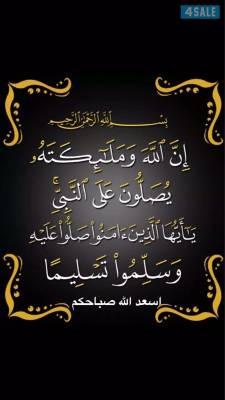 4SALE
بِسْمِ ٱللَّهِ ٱلرَّحْمَٰنِ ٱلرَّحِيمِ
إِنَّ ٱللَّهَ وَمَلَٰٓئِكَتَهُۥ
يُصَلُّونَ عَلَى ٱلنَّبِىِّ ۚ
يَٰٓأَيُّهَا ٱلَّذِينَ ءَامَنُوا۟ صَلُّوا۟ عَلَيْهِ
وَسَلِّمُوا۟ تَسْلِيمًا
اسعد الله صباحكم